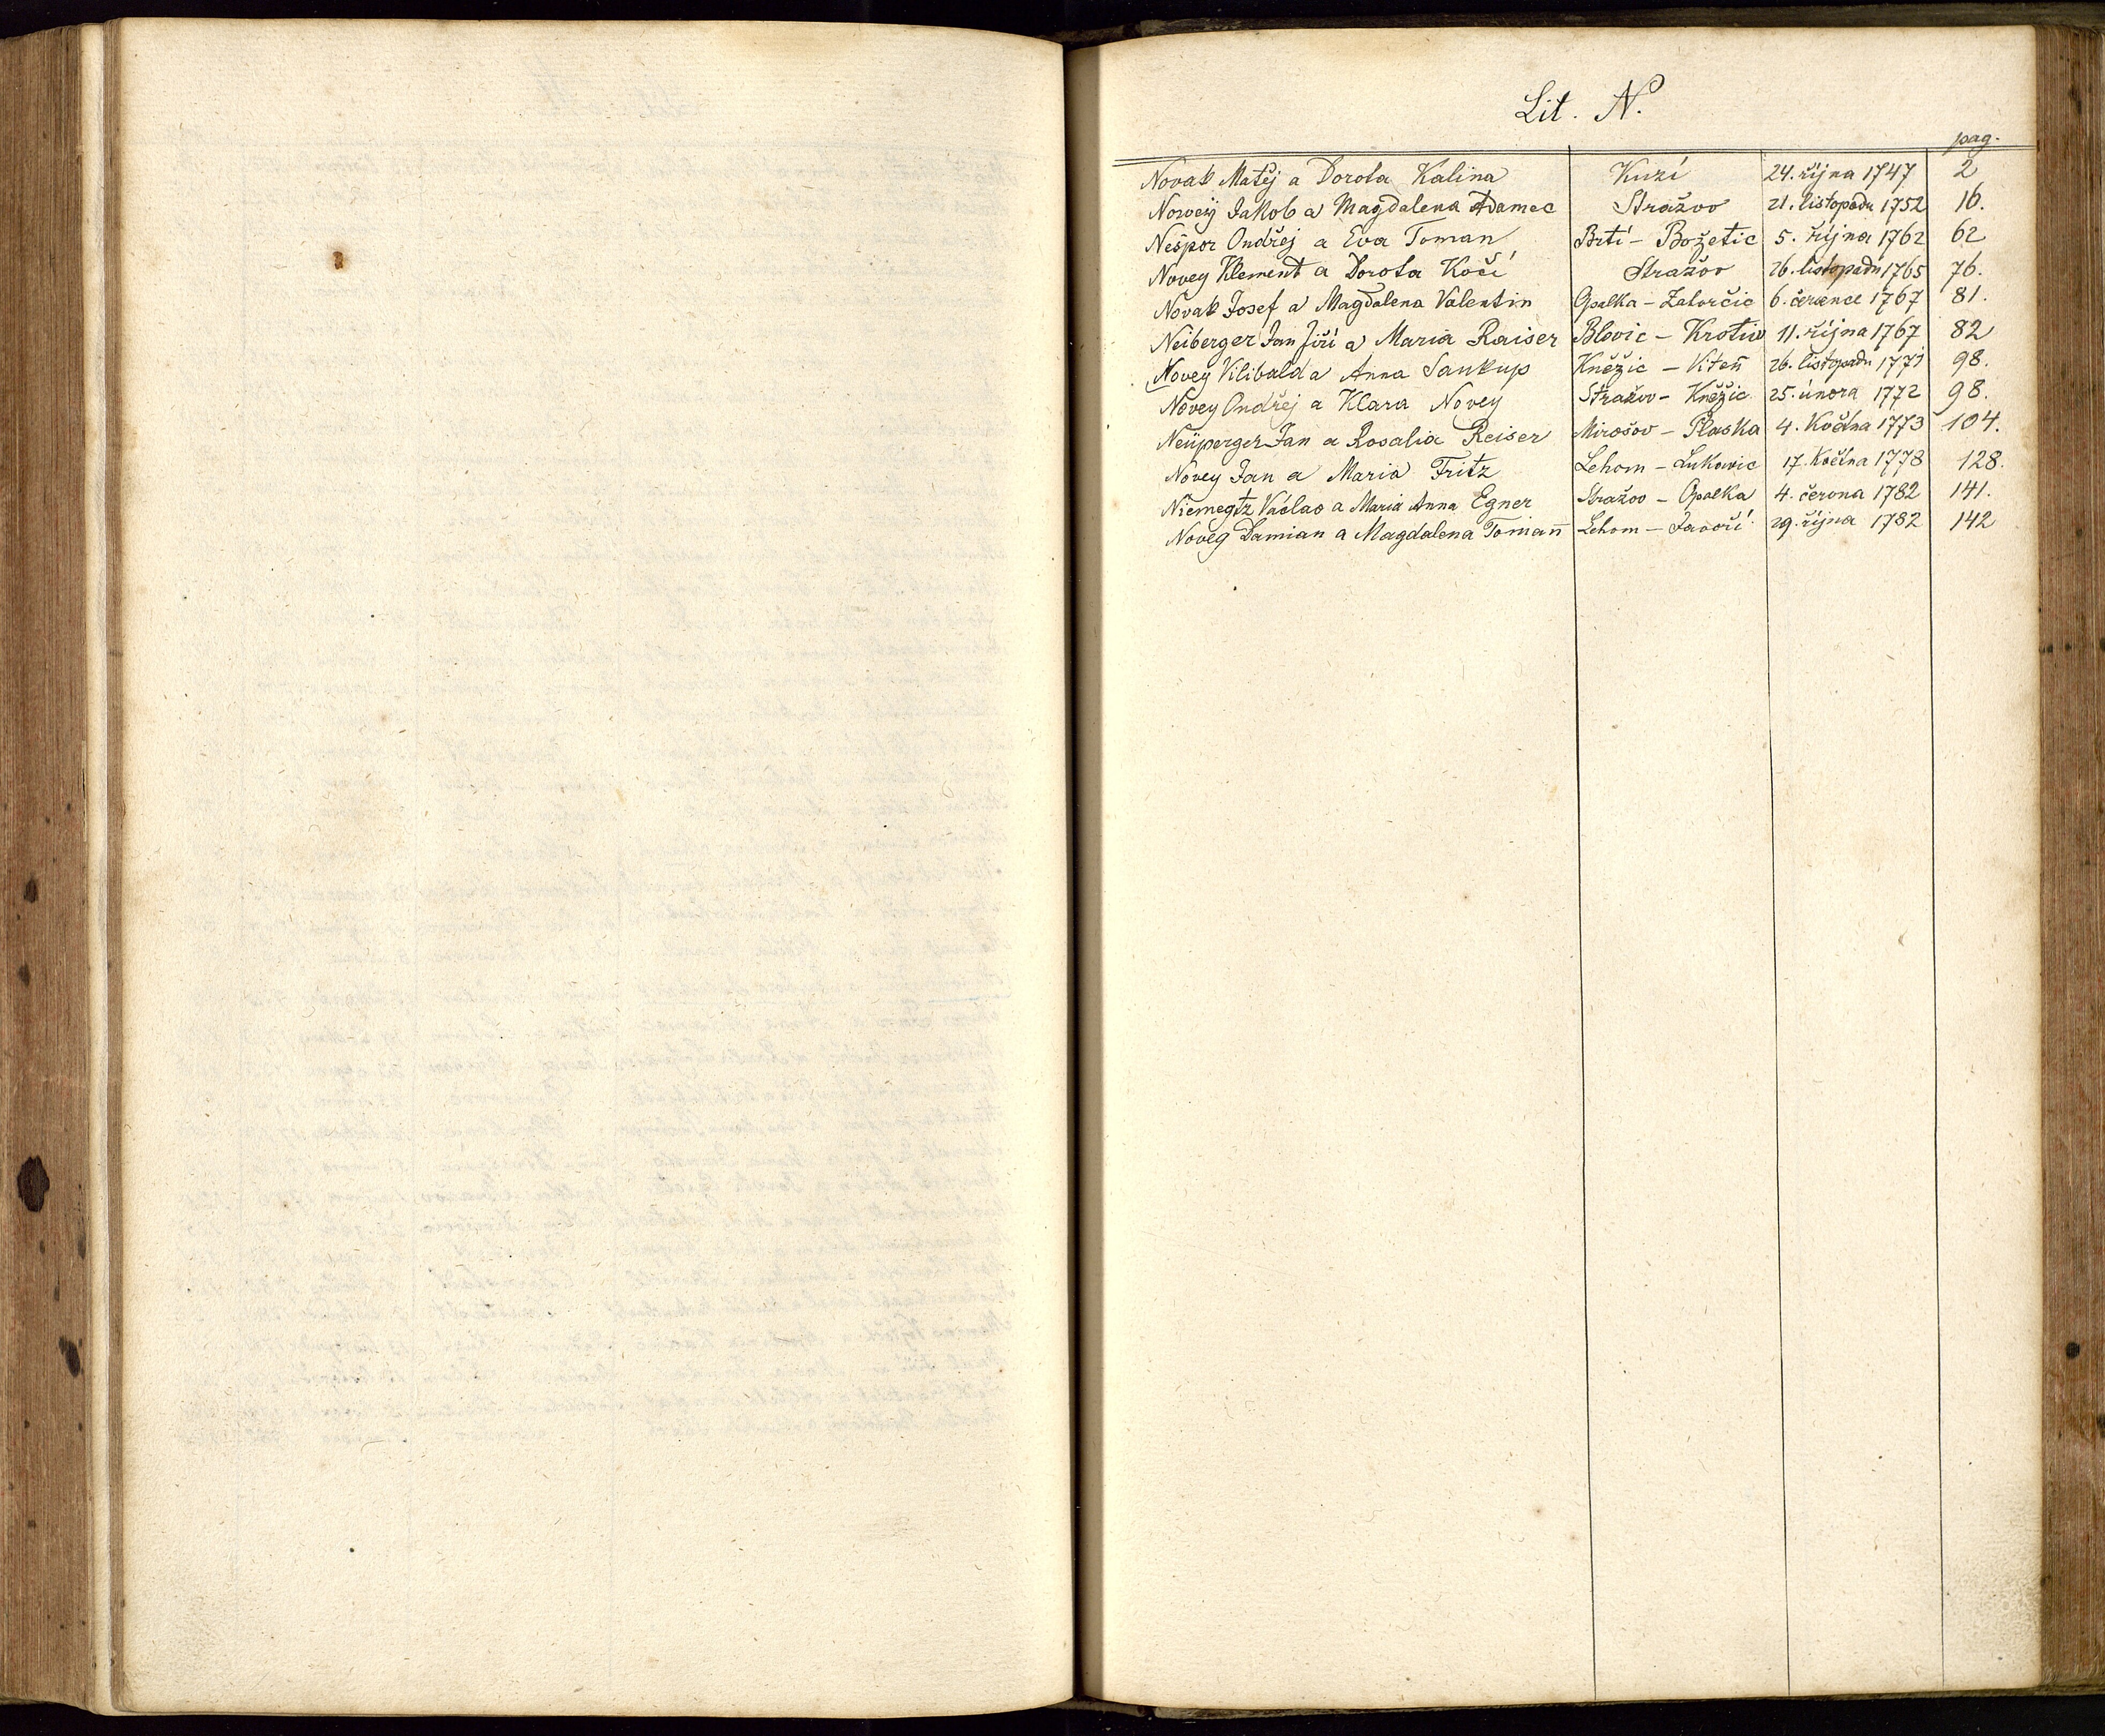 Lit. N.
pag.
Novak Matěj a Dorota Kalina Kuzí 24. října 1747 2
Novey Jakob a Magdalena Adamec Stražov 21. listopadu 1752 16.
Nešpor Ondřej a Eva Toman Brtí - Božetic 5. října 1762 62
Novey Klement a Dorota Kočí Stražov 26. listopadu 1765 76.
Novak Josef a Magdalena Valentin Opalka - Zaborčic 6. července 1767 81.
Neiberger Jan Jiří a Maria Raiser Blovic - Krotiv 11. října 1767 82
Novey Vilibald a Anna Saukup Kněžic - Viteň 26. listopadu 1771 98.
Novey Ondřej a Klara Novey Stražov - Kněžic 25. února 1772 98.
Neüperger Jan a Rosalia Reiser Mirošov - Planska 4. Května 1773 104.
Novey Jan a Maria Fritz Lehom - Lukavic 17. Května 1778 128.
Niemegtz Václav a Maria Anna Egner Stražov - Opalka 4. června 1782 141.
Noveg Damian a Magdalena Toman̅ Lehom - Javoří 29. října 1782 142